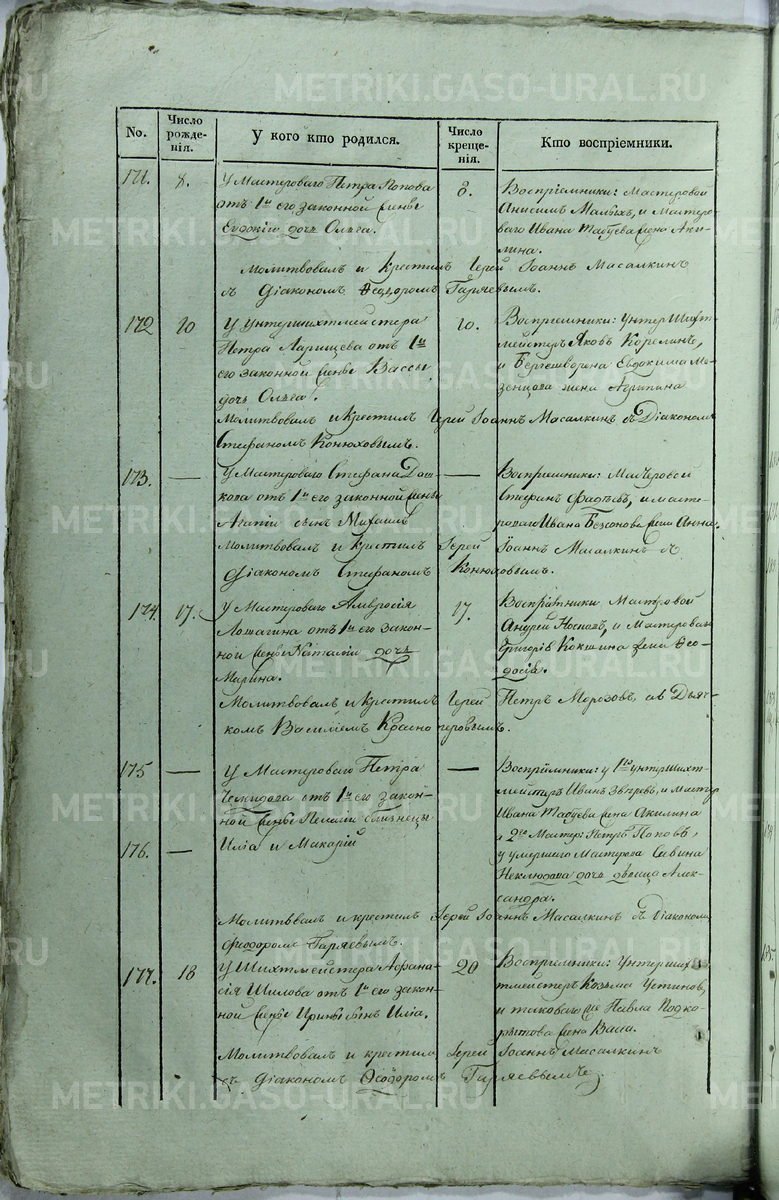 METRIKI.GASO-URAL.RU
No.
Число рожде-нія.
У кого кто родился.
Число креще-нія.
Кто воспріемники.
171. 8. У Мастероваго Петра Попова
отъ 1й его законной жены
Евдокіи дочь Ольга.
8. Воспріемники: Мастеровой
Анисимъ Малыхъ, и Мастеро-
ваго Ивана жена Аки-
лина.
Молитвовалъ и крестилъ Іерей Іоаннъ Масалкинъ
съ Діакономъ Ѳеодоромъ Гаряевымъ.
172 10 У Унтершихтмейстера
Петра Ларищева отъ 1й
его законной жены Вассы
дочь Ольга.
10. Воспріемники: Унтер Шихт
мейстеръ Яковъ Корелинъ,
и Бергешворена Евдокима Ме-
зенцова жена Агрипина
Молитвовалъ и крестилъ Іерей Іоаннъ Масалкинъ съ Діакономъ
Стефаномъ Конюховымъ.
173. — У Мастероваго Стефана
отъ 1й его законной жены
сынъ Михаилъ
— Воспріемники: Мастеровой
Стефанъ Фадѣевъ, и масте-
роваго Ивана Безсонова жена Анна.
Молитвовалъ и крестилъ Іерей Іоаннъ Масалкинъ съ
Діакономъ Стефаномъ Конюховымъ.
174. 17. У Мастероваго Амвросія
Лошагина отъ 1й его закон-
ной жены Наталіи дочь
Марина.
17. Воспріѣмники Мастеровой
Андрей и Мастероваго
Григорія Кокшина жена Ѳео-
досія.
Молитвовалъ и крестилъ Іерей Петръ Морозовъ, съ Дьяч-
комъ Василіемъ
175 — У Мастероваго Петра
отъ 1й его закон-
ной жены Пелагіи близнецы
176. — Иліа и Макарій
— Воспріемники: у 1го унтершихт-
мейстеръ Иванъ Звѣревъ, и Мастер
Ивана жена Акилина
а 2го Мастер: Петръ Поповъ,
у умершаго Мастероваго Саввина
Неклюдова дочь дѣвица Алек-
сандра.
Молитвовалъ и крестилъ Іерей Іоаннъ Масалкинъ съ Діакономъ
Феодоромъ Гаряевымъ.
177. 18 У Шихтмейстера Афана-
сія Шилова отъ 1й его закон-
ной жены Ирины сынъ Иліа.
20 Воспріемники: Унтерших
тмейстеръ Козьма Устиновъ,
и таковаго же Павла Подко-
рытова жена
Молитвовалъ и крестилъ Іерей Іоаннъ Масалкинъ
съ Діакономъ Ѳеодоромъ Гаряевымъ.